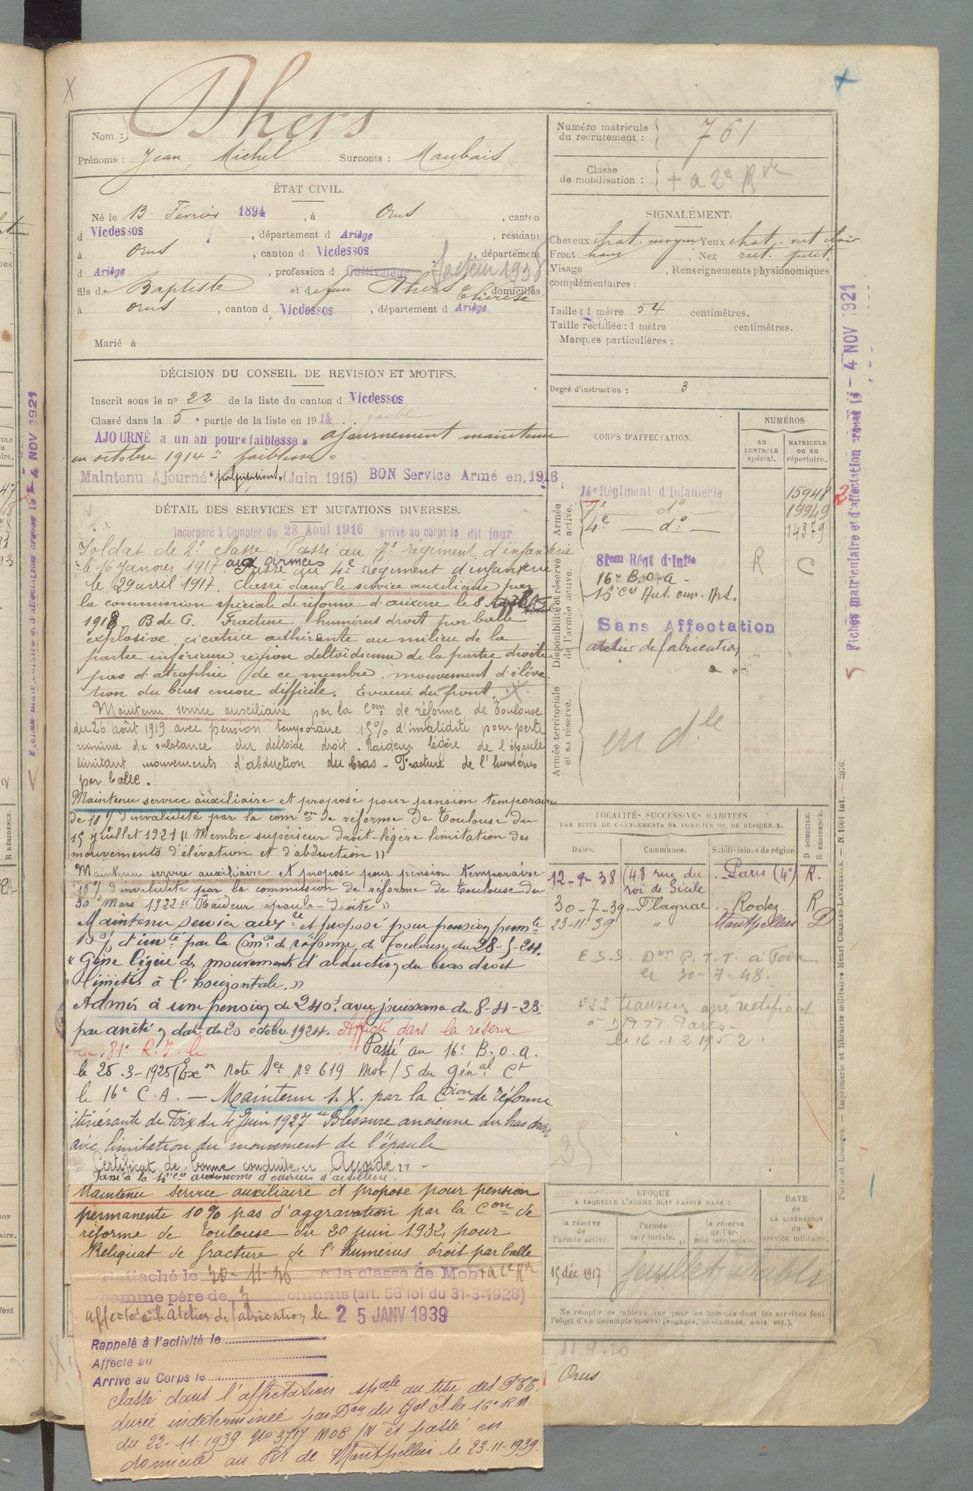 Nom : Dhers
Prénoms : Jean Michel Surnoms : Maubais
ÉTAT CIVIL.
Né le 13 Février 1894, à Orus, canton
d Vicdessos, département d Ariège, résidant
à Orus, canton d Vicdessos, département
d Ariège, profession d Cultivateur facteur 1938
fils de Baptiste et de feue Dhers Thérèse, domiciliés
à Orus, canton d Vicdessos, département d Ariège
Marié à
DÉCISION DU CONSEIL DE REVISION ET MOTIFS.
Inscrit sous le n° 22 de la liste du canton d Vicdessos
Classé dans la 5e partie de la liste en 1914
AJOURNÉ à un an pour « faiblesse » ajournement maintenu
en octobre 1914 " faiblesse "
Maintenu Ajourné " palpitations " (Juin 1915) BON Service Armé en 1916
DÉTAIL DES SERVICES ET MUTATIONS DIVERSES.
Incorporé à Compter du 28 Aout 1916 arrivé au corps le dit jour
Soldat de 2e classe. Passé au 7e régiment d'infanterie
le 16 janvier 1917 aux armées Passé au 4e régiment d'infanterie
le 29 avril 1917. Classé dans le service auxiliaire par
la commission spéciale de réforme d'Auxerre le 8
1918, B de G. Fracture humérus droit par balle
explosive, cicatrice adhérente au milieu de la
partie inférieure région deltoïdienne de la partie droite
pas d'atrophie de ce membre, mouvement d'éléva
tion du bras encore difficile. Evacué du front.
Maintenu service auxiliaire par la Com. de réforme de Toulouse
du 26 août 1919 avec pension temporaire 15% d'invalidité pour perte
minime de substance du deltoïde droit. Raideur légère de l'épaule
limitant mouvements d'abduction du bras - Fracture de l'humérus
par balle.
Maintenu service auxiliaire et proposé pour pension temporaire
de 10% d'invalidité par la comon de réforme de Toulouse du
15 juillet 1921 " Membre supérieur droit - légère limitation des
mouvements d'élévation et d'abduction "
Maintenu service auxiliaire et proposé pour pension temporaire
10% d'invalidité par la commission de réforme de Toulouse du
30 Mars 1922 " Raideur épaule droite "
Maintenu service auxre et proposé pour pension permte
10% d'invté par la Comon de réforme de Toulouse du 28-5-24.
" Gêne légère des mouvements d'abduction du bras droit
limités à l'horizontale. "
Admis à une pension de 240f. avec jouissance du
par arrêté en date du 20 octobre 1924. Affecté dans la réserve
au 81e R.I. le Passé au 16e B.O.A.
le 25-3-1925 (Exon Note Sce No 619 Mob/S du Génal Ct
le 16e C.A. - Maintenu S.X. par la Cion de réforme
itinérante de Foix du 4 Juin 1927 " Blessure ancienne du bras droit
avec limitation du mouvement de l'épaule
Certificat de bonne conduite " Accordé "
Passé à la 16e Cie autonome d'ouvriers d'artillerie.
Maintenu service auxiliaire et proposé pour pension
permanente 10% pas d'aggravation par la Con de
réforme de Toulouse du 20 juin 1932, pour
Reliquat de fracture de l'humérus droit par balle
Rattaché le 30-11-36 à la classe de Mob
comme père de 3 enfants (art. 58 loi du 31-3-1928)
affecté à l'Atelier de fabrication le 25 JANV 1939
Rappelé à l'activité le
Affecté au
Arrivé au Corps le
Classé dans l'affectation spale au titre des P.T.T.
durée indéterminée par Don du Gal Ct la 16e R.M.
du 22-11-1939 No 3717 MOB/N et passé en
domicile au Rt de Montpellier le 23-11-1939.
Numéro matricule du recrutement : 761
Classe de mobilisation :
SIGNALEMENT.
Cheveux chat. moyen Yeux chat. vt clair
Front Nez
Visage , Renseignements physionomiques
complémentaires :
Taille : 1 mètre 54 centimètres.
Taille rectifiée : 1 mètre centimètres.
Marques particulières :
Degré d'instruction : 3
CORPS D'AFFECTATION.
NUMÉROS
AU CONTROLE spécial.
MATRICULE OU AU répertoire.
Armée active.
Régiment d'Infanterie 15948
7e do 19949
4e do 14379
Disponibilité et réserve de l'armée active.
81eme Régt d'Infie R C
16e B.O.A.
16e Cie Aut. ouv. Art.
Sans Affectation
atelier de fabrication
Armée territoriale et sa réserve.
en dle
LOCALITÉS SUCCESSIVES HABITÉES
PAR SUITE DE CHANGEMENTS DE DOMICILE OU DE RÉSIDENCE.
Dates. Communes. Subdivisions de région D DOMICILE. R RÉSIDENCE.
12-9-38 (48 rue du roi de Sicile Paris (4e) R.
30-7-39 Flagnac Rodez R
23-11-39 " Montpellier D
E.S.S. Don P.T.T. à Foix
le 30-7-48.
ESS
le 16-12-1952.
ÉPOQUE
A LAQUELLE L'HOMME DOIT PASSER DANS :
la réserve de l'armée active.
l'armée territoriale.
la réserve de l'armée territoriale.
DATE DE LA LIBÉRATION DU service militaire.
15 déc 1917
feuillet établi
Ne remplir ce tableau que pour les hommes dont les services font
l'objet d'un décompte spécial (engagés, condamnés, omis, etc.).
Orus
Fiches matriculaire et d'affectation
4 NOV 1921
Paris et Limoges. — Imprimerie et librairie militaires Henri CHARLES-LAVAUZELLE.